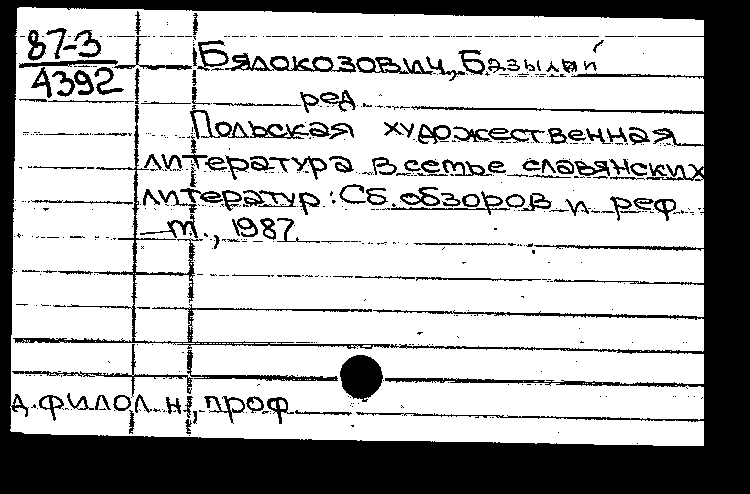 87-3
4392
Бялокозович, Базылий
ред.
Польская художественная
литература в семье славянских
литератур: Сб. обзоров и реф.
— М., 1987.
д. филол. н., проф.